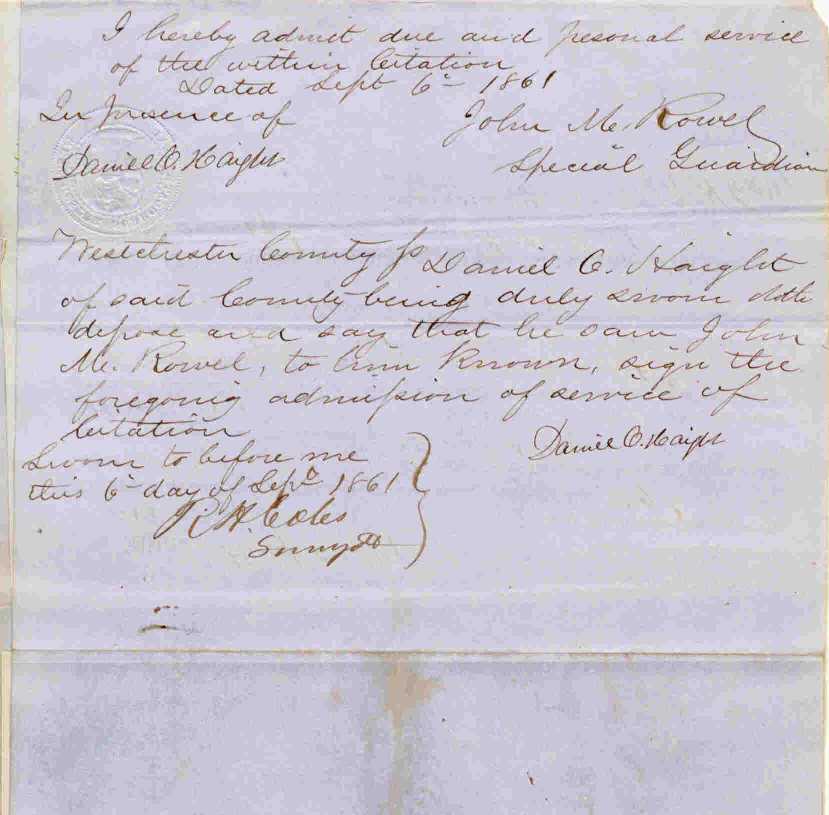 I hereby admit due and pesonal service
of the within Citation
Dated Sept 6th 1861
In presence of
John M. Rowel
Daniel O. Haight
Special Guardian
Westchester County ss Daniel O. Haight
of said County being duly sworn doth
depose and say that he saw John
M. Rowel, to him known, sign the
foregoing admission of service of
Citation
Daniel O. Haight
Sworn to before me
this 6th day of Sept 1861
R. H. Coles